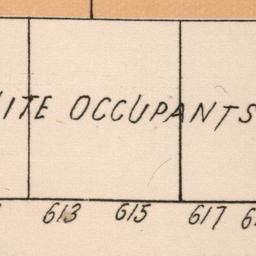 OCCUPANTS
613 615 617